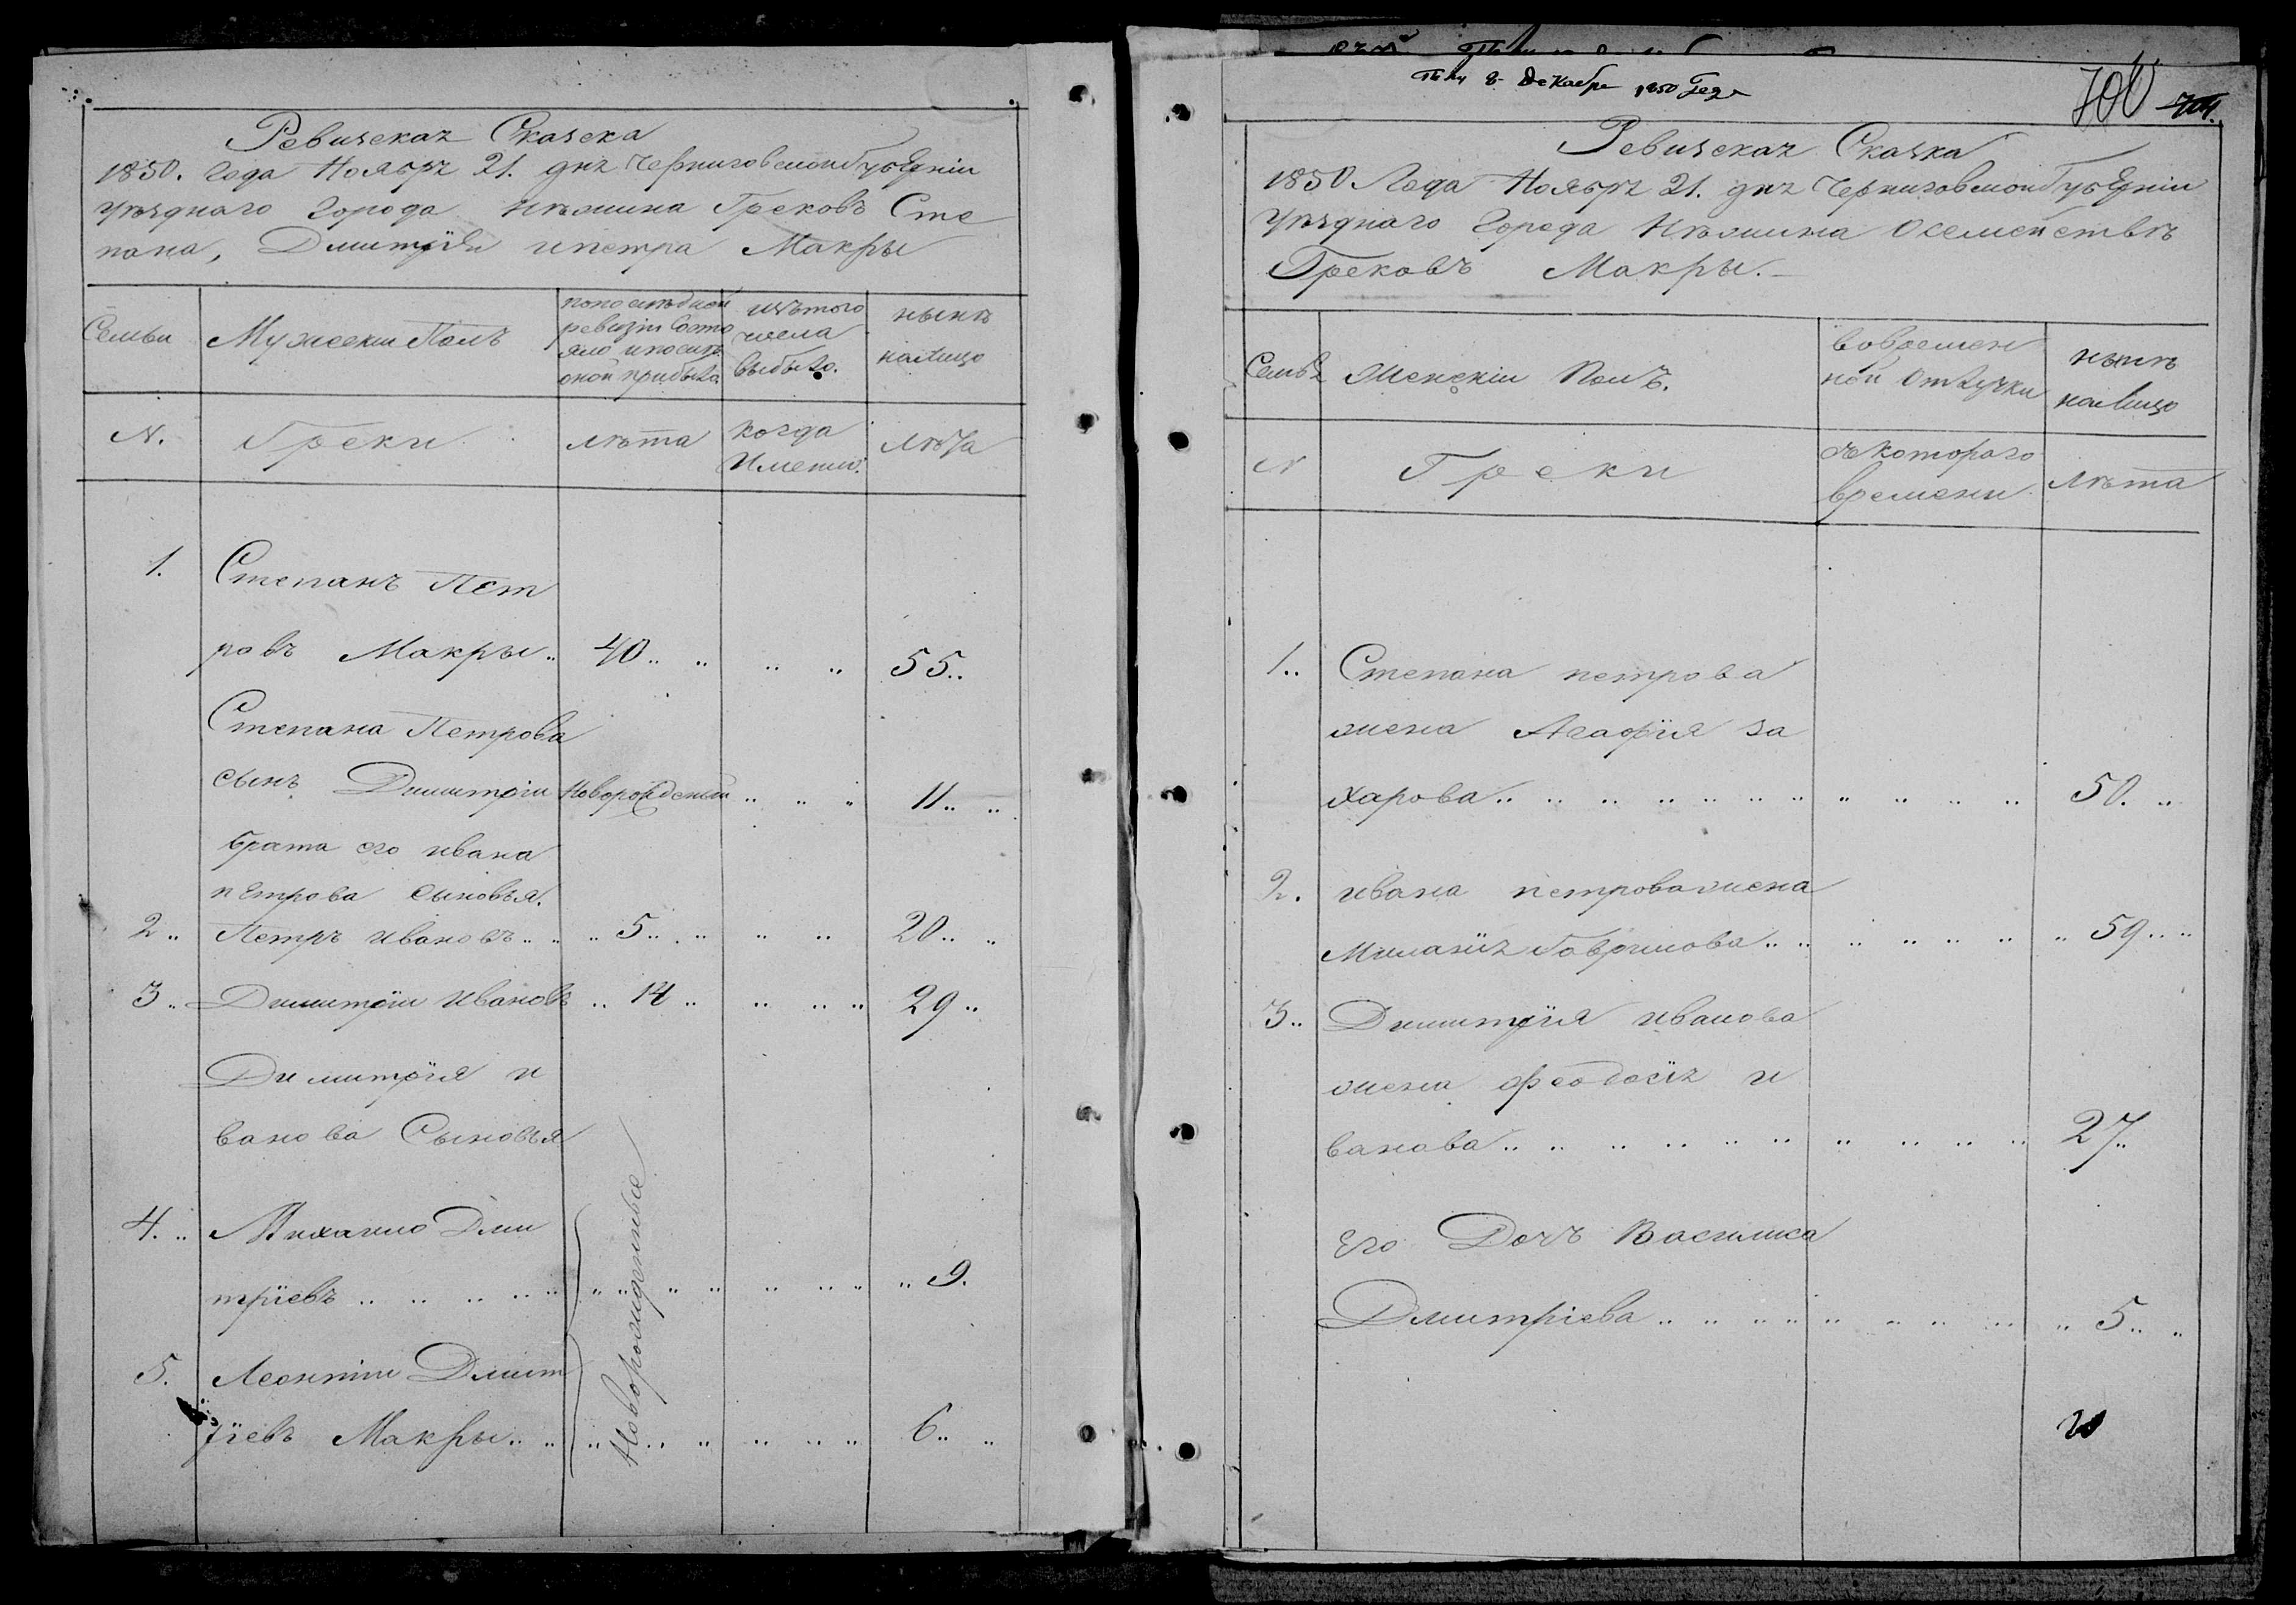 Ревизская Сказска
1850. Года Ноября 21. дня Черниговской Губерніи
уезднаго Города Нѣжина Грековъ Сте
пана, Дмитрія ипетра Макры
Семьи
Мужески Полъ
попоследней
ревизіи Состо
яло ипослѣ
оной прибыло
изътого
числа
выбыло.
нынѣ
налицо
N.
Греки
лѣта
когда
Именно.
лѣта
1. Степанъ Пет
ровъ Макры .. 40 .. .. .. .. 55 ..
Степана Петрова
сынъ Димитріи Новорожденый .. .. .. 11 .. ..
брата его ивана
петрова сыновья.
2 .. Петръ ивановъ .. .. .. 5 .. .. .. .. 20 .. ..
3 .. Димитріи Ивановъ .. 14 .. .. .. .. 29 ..
Димитрія и
ванова Сыновья
4. .. Михаило Дми
тріевъ .. .. .. .. .. .. .. .. .. .. .. .. .. 9.
5. Леонтіи Дмит
ріевъ Макры .. .. .. .. .. .. .. .. 6 .. ..
Новорожденные
8 Декабря 1850 Года
700 704.
Ревизская Сказка
1850 Года Ноября 21. дня Черниговской Губерніи
Уезднаго Города Нѣжина Осемействѣ
Грековъ Макры. —
Семья
Женскіи Полъ.
вовремен
ной Отлучки
нынѣ
налицо
N
Греки
съкотораго
времени
лѣта
1 .. Степана петрова
жена Агафія за
харова .. .. .. .. .. .. .. .. .. .. .. 50. ..
2. ивана петрова жена
Миланія Гаврилова .. .. .. .. .. .. .. .. 59 .. ..
3 .. Димитрія иванова
жена феодосія и
ванова .. .. .. .. .. .. .. .. .. .. 27 ..
Его Дочъ Василиса
Дмитріева .. .. .. .. .. .. .. .. .. 5 .. ..